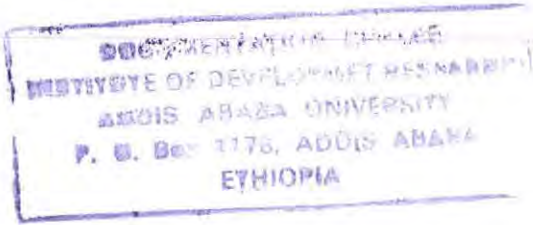 DOCUMENTATION
INSTITUTE OF DEVELOPMENT RESEARCH
ADDIS ABABA UNIVERSITY
P. O. Box 1176, ADDIS ABABA
ETHIOPIA